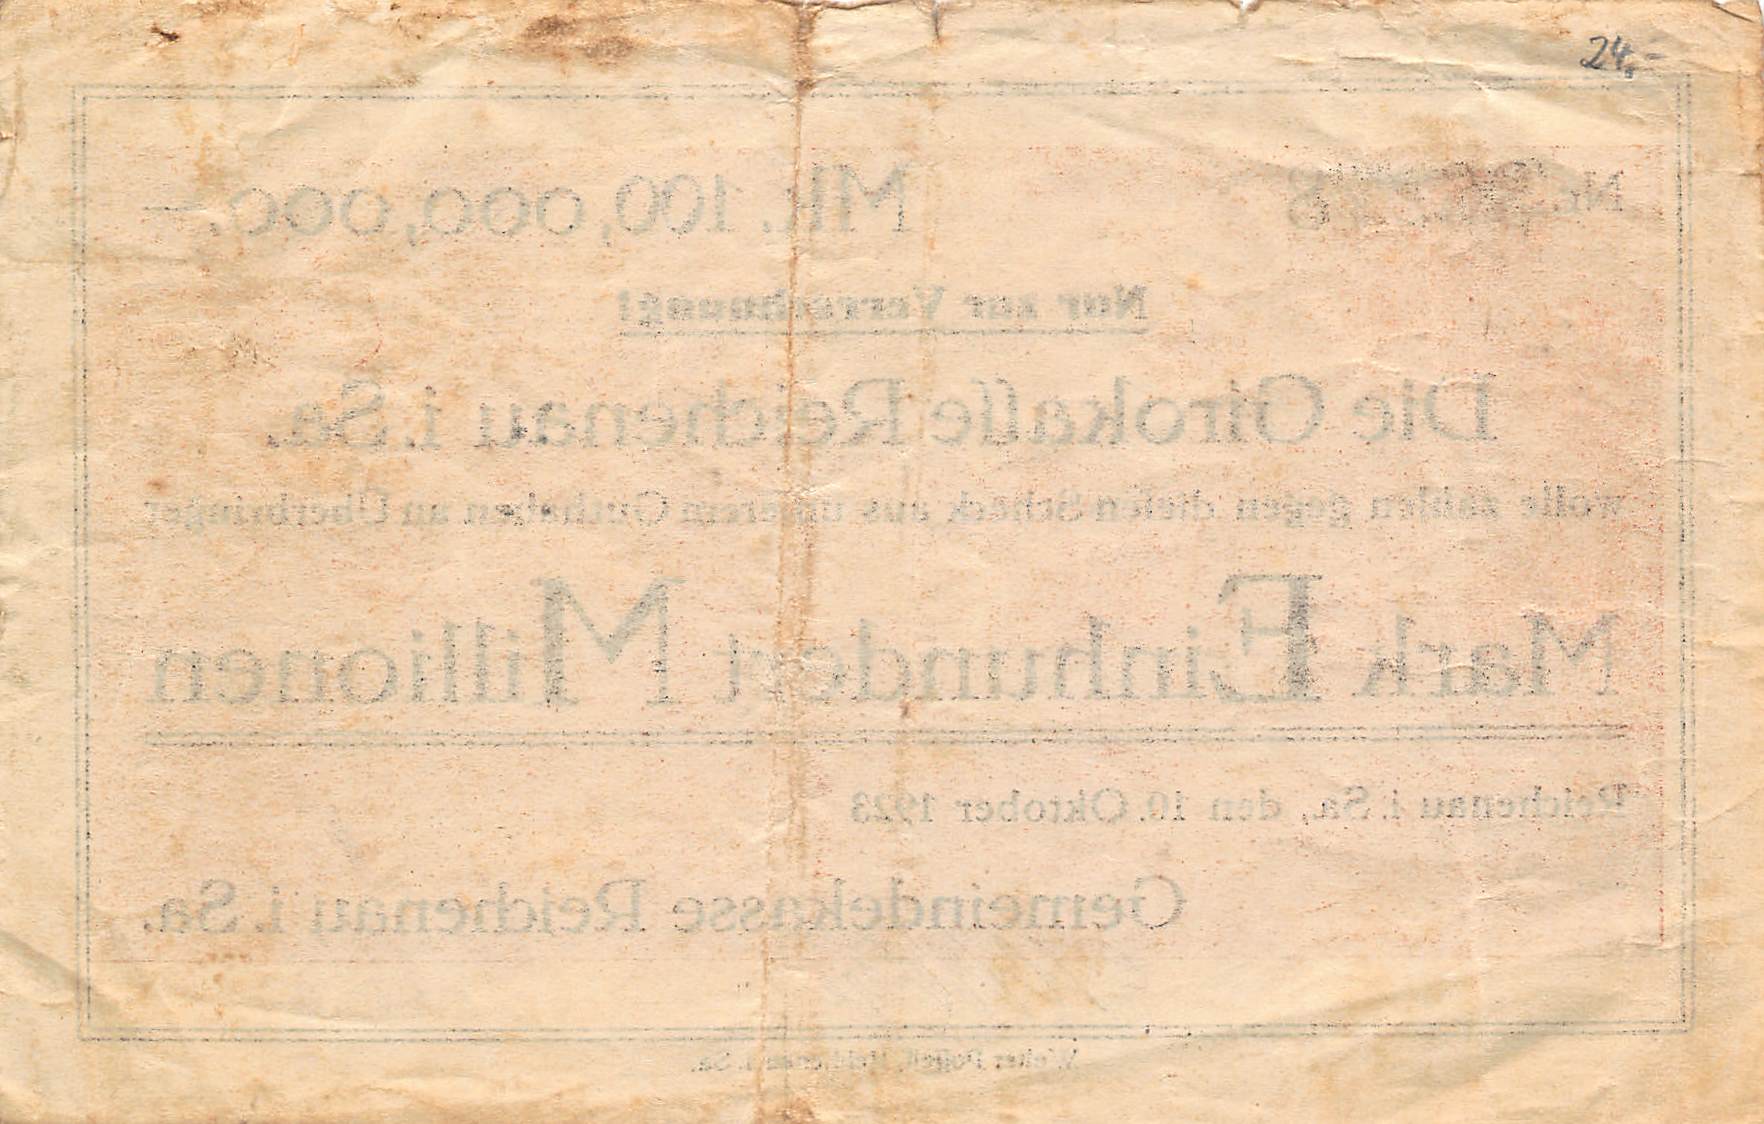 24,-
Nr.
Mk. 100,000,000.—
Nur zur Verrechnung!
Die Girokaſſe Reichenau i. Sa.
wolle zahlen gegen dieſen Scheck aus unſerem Guthaben an Überbringer
Mark Einhundert Millionen
Reichenau i. Sa., den 10. Oktober 1923
Gemeindekasse Reichenau i. Sa.
Reichenau i. Sa.